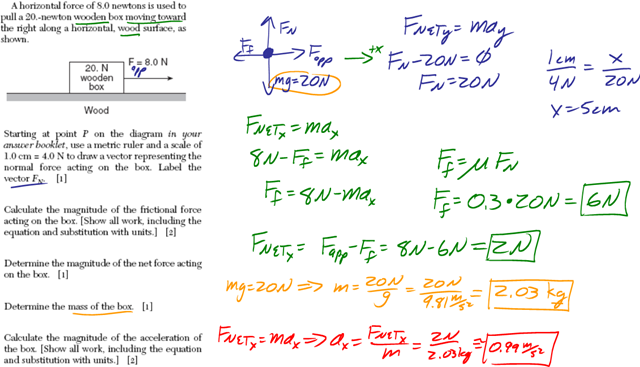 A horizontal force of 8.0 newtons is used to
pull a 20.-newton wooden box moving toward
the right along a horizontal, wood surface, as
shown.
20. N
wooden
box
F = 8.0 N
app
Wood
Starting at point P on the diagram in your
answer booklet, use a metric ruler and a scale of
1.0 cm = 4.0 N to draw a vector representing the
normal force acting on the box. Label the
vector F_N. [1]
Calculate the magnitude of the frictional force
acting on the box. [Show all work, including the
equation and substitution with units.] [2]
Determine the magnitude of the net force acting
on the box. [1]
Determine the mass of the box. [1]
Calculate the magnitude of the acceleration of
the box. [Show all work, including the equation
and substitution with units.] [2]
F_N
F_f
F_app
+x
mg=20N
F_NETy = ma_y
F_N - 20N = 0
F_N = 20N
1cm/4N = x/20N
x = 5cm
F_NETx = ma_x
8N - F_f = ma_x
F_f = 8N - ma_x
F_f = μ F_N
F_f = 0.3 • 20N = 6N
F_NETx = F_app - F_f = 8N - 6N = 2N
mg = 20N ⇒ m = 20N/g = 20N/9.81 m/s² = 2.03 kg
F_NETx = ma_x ⇒ a_x = F_NETx/m = 2N/2.03kg ≅ 0.99 m/s²